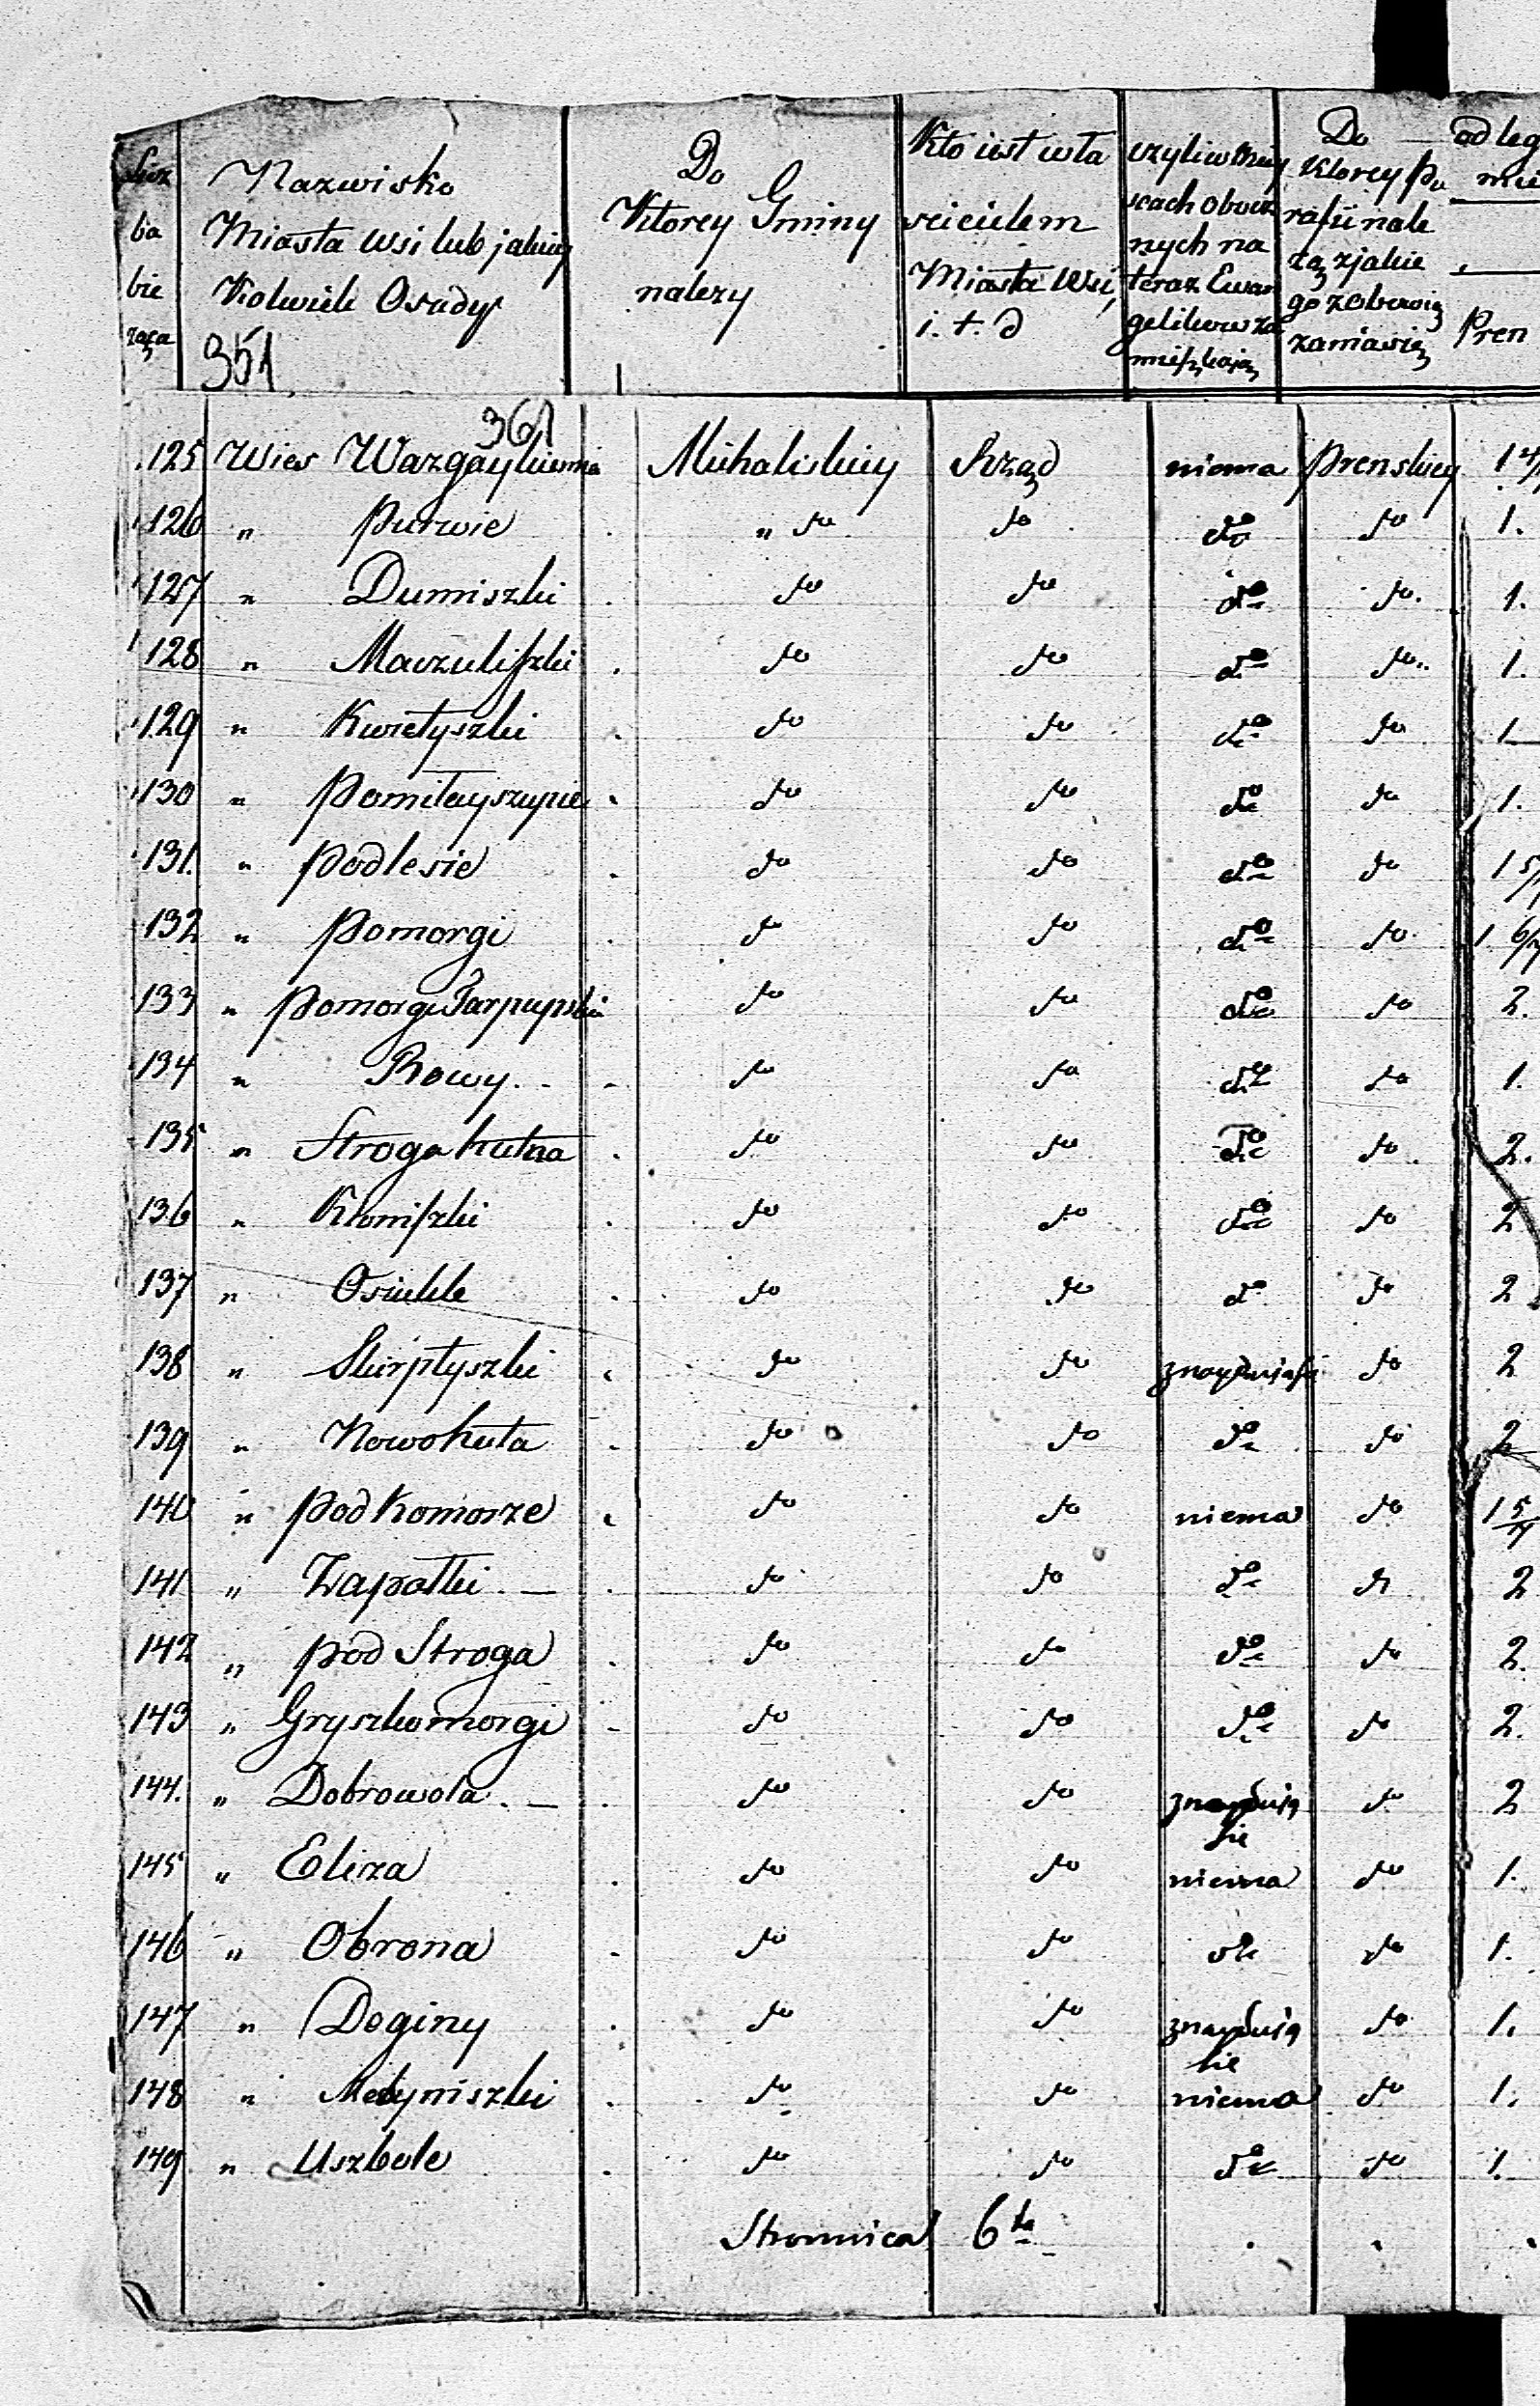 Licz ba bie żąca | Nazwisko Miasta wsi lub jakiey Kolwiek Osady | Do Ktorey Gminy nalezy | Kto iest wła scicielem Miasta Wsi, i. t. d | czyli w Miey scach obocz nych na teraz Ewan gelikow za mieszkają | Do Ktorey Pa rafii nale żą zjakie go zobowią zaniasię | odleg mie Pren
351
361
125 Wies Wazgaykiemia | Michaliskiey | Rząd | niema | Prenskiey | 1 4/
126 „ Purwie | „ do | do | do | do | 1.
127 „ Dumiszki | do | do | do | do. | 1.
128 „ Maczuliszki | do | do | do | do.. | 1.
129 „ Kwietyszki | do | do | do | do | 1
130 „ Pomiłayszupie | do | do | do | do | 1.
131. „ Podlesie | do | do | do | do | 1 5/
132 „ Pomorgi | do | do | do | do. | 1 6/7
133 „ Pomorgi Tarpupskie | do | do | do | do | 2.
134 „ Rowy. - - | do | do | do | do | 1.
135 „ Stroga hutna | do | do | do | do | 2.
136 „ Kloniszki | do | do | do | do | 2
137 „ Osiekle | do | do | do | do | 2
138 „ Skirptyszki | do | do | znayduiąsię | do | 2
139 „ Nowohuta | do | do | do | do | 2
140 „ Pod Komorze | do | do | niema | do | 1 5/7
141 „ Zapałki. — | do | do | do | do | 2
142 „ Pod Stroga | do | do | do | do | 2.
143 „ Gryszkomorgi | do | do | do | do | 2.
144. „ Dobrowola. — | do | do | znayduią się | do | 2
145 „ Eliza | do | do | niema | do | 1.
146 „ Obrona | do | do | do | do | 1.
147 „ Doginy | do | do | znayduią się | do | 1.
148 „ Medyniszki | do | do | niema | do | 1.
149 „ Uszbole | do | do | do | do | 1.
Stronnica 6ta